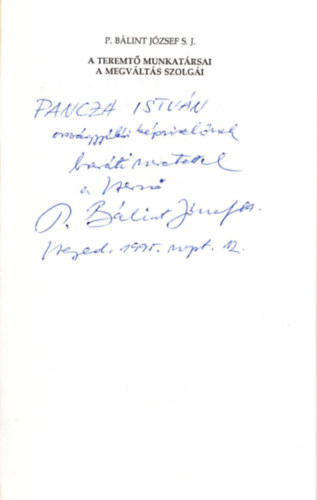 P. BÁLINT JÓZSEF S. J.
A TEREMTŐ MUNKATÁRSAI
A MEGVÁLTÁS SZOLGÁI
PANCZA ISTVÁN
országgyűlési képviselőnek
baráti szeretettel
a szerző
P. Bálint József SJ.
Szeged, 1995. szept. 12.